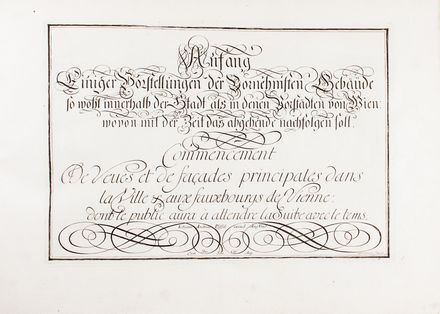 Anfang
Einiger Vorstellungen der Vornehmsten Gebäude
so wohl innerhalb der Stadt als in denen Vorstädten von Wien:
wovon mit der Zeit das abgehende nachfolgen soll.
Commencement
De Veues et de façades principales dans
la Ville & aux fauxbourgs de Vienne:
dont le public aura a attendre la Suite avec le tems.